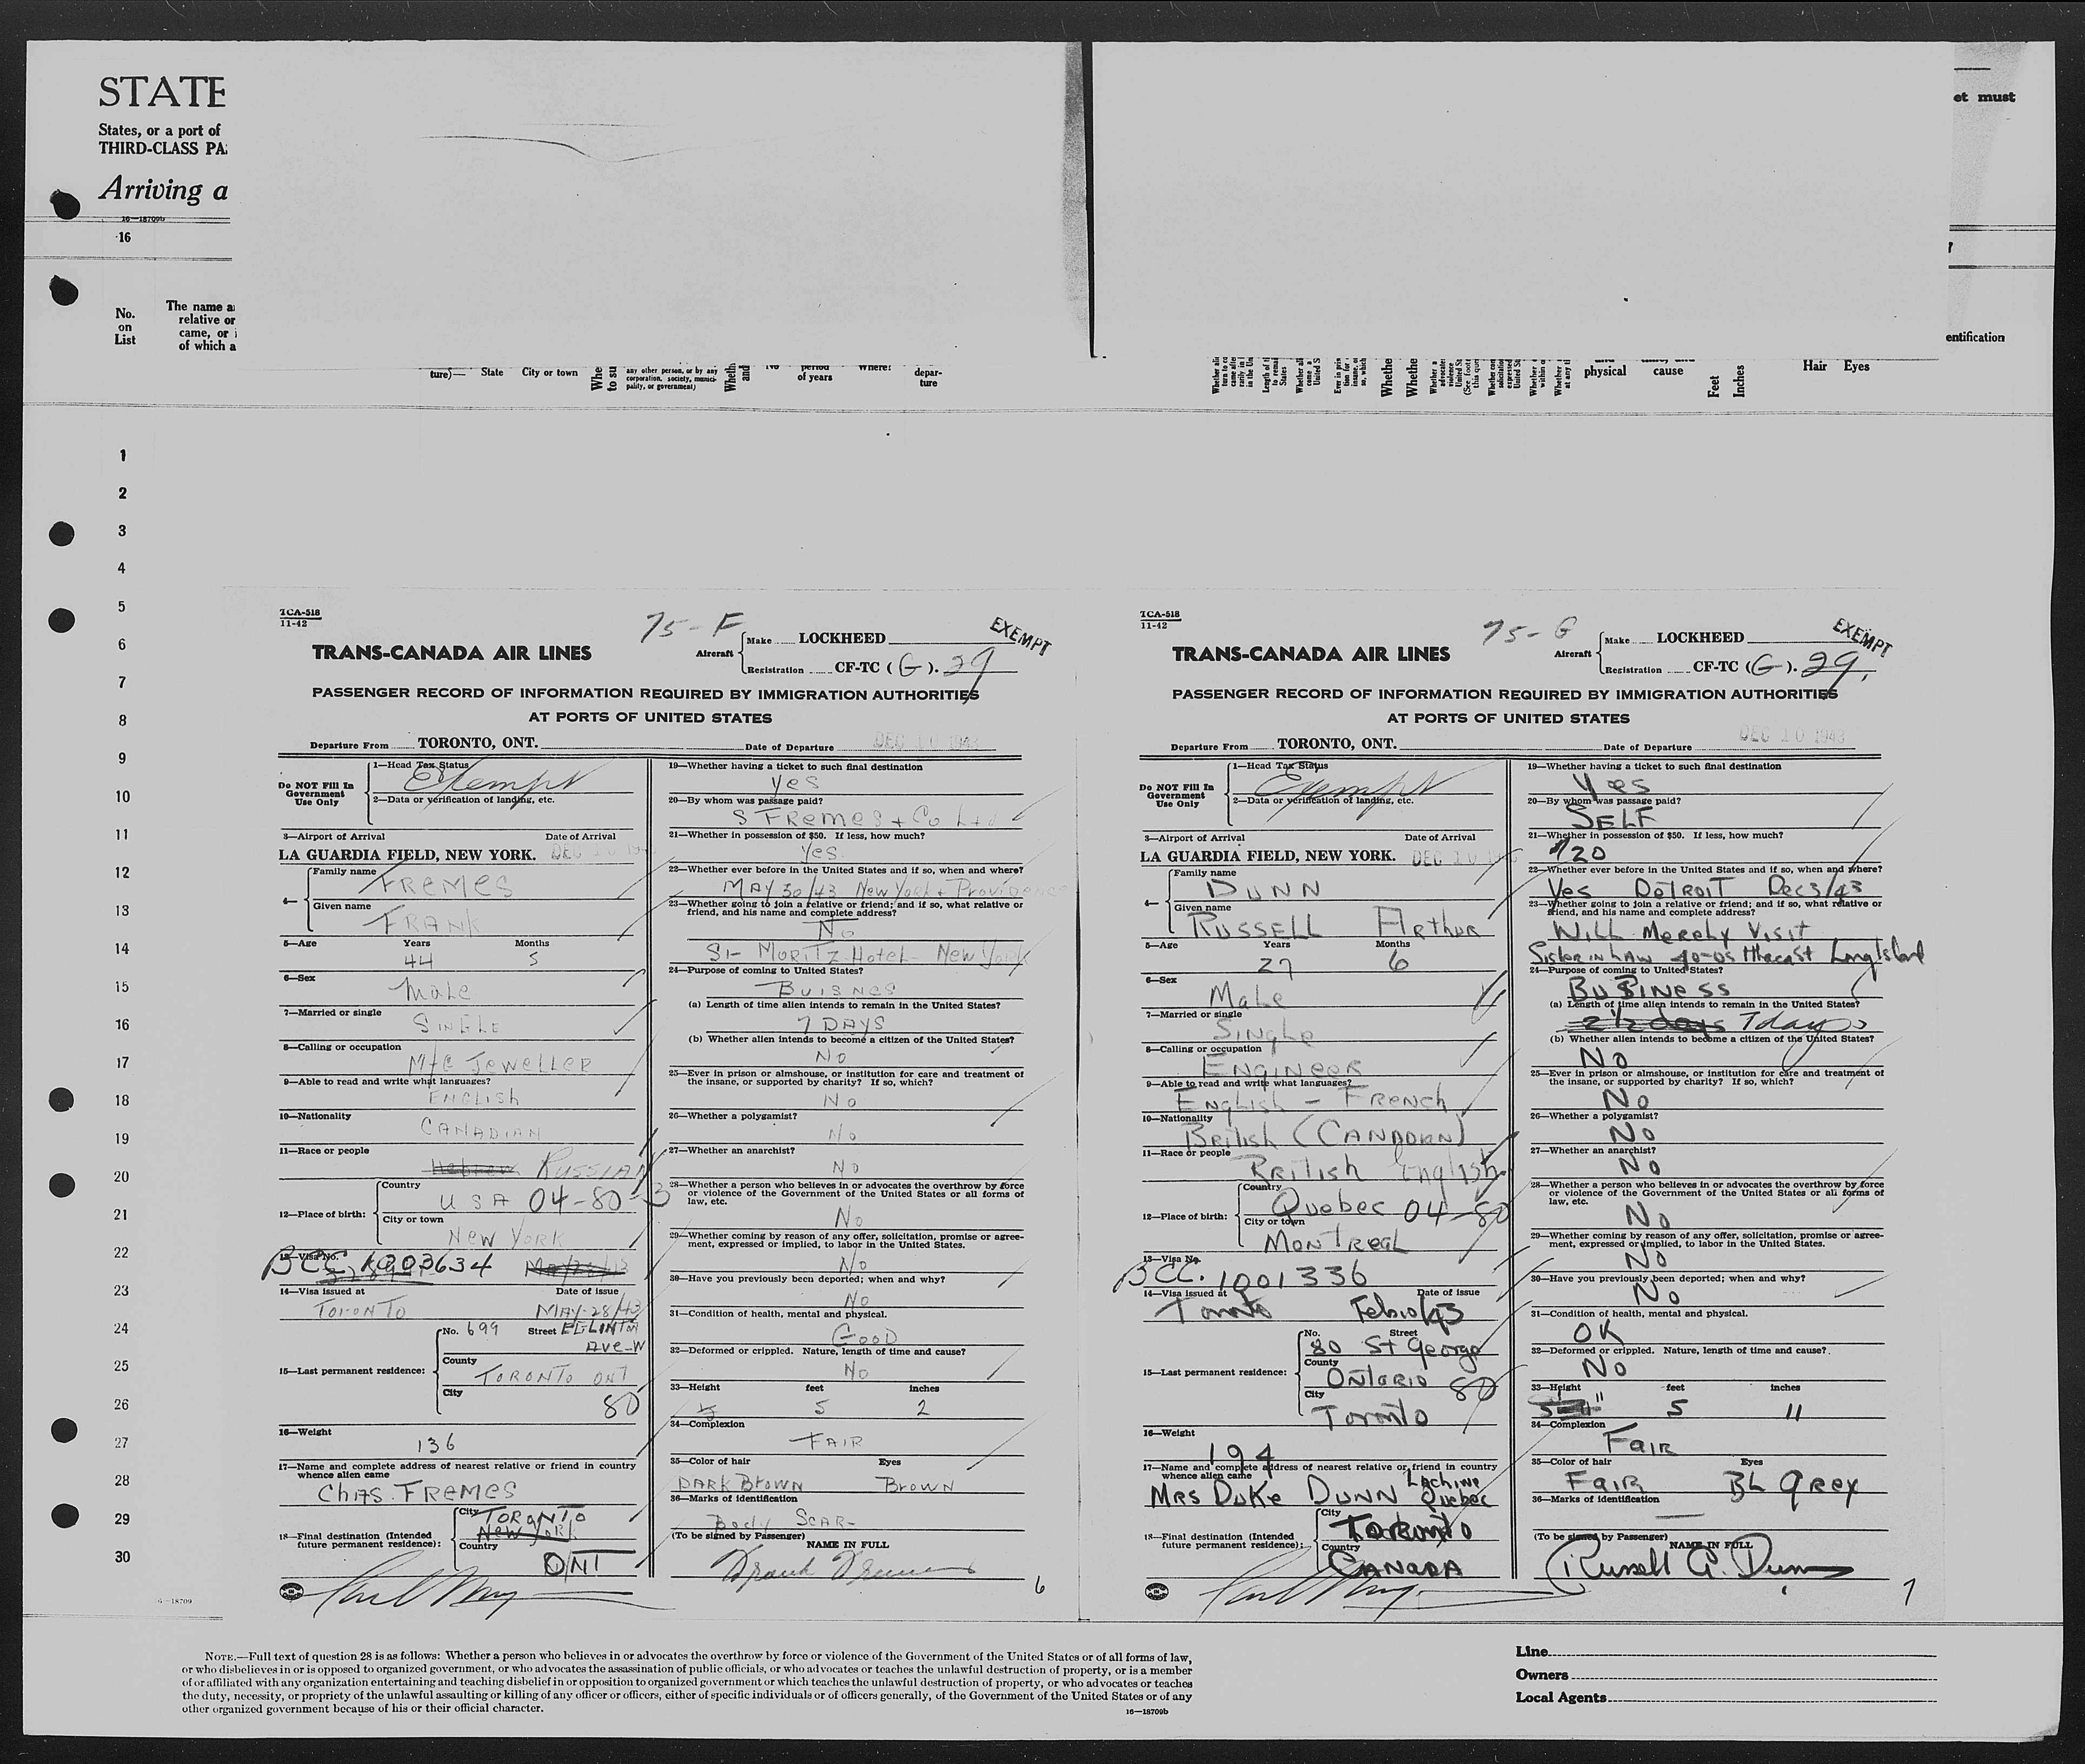 STATE
States, or a port of
THIRD-CLASS PA
Arriving a
16—18709b
16
et must
No.
on
List
The name a
relative or
came, or i
of which a
entification
ture)— State City or town
Whe
to su
any other person, or by any
corporation, society, munici-
pality, or government)
Wheth
and
period
of years
Where?
depar-
ture
Whethe
Whethe
physical
cause
Feet
Inches
Hair Eyes
1
2
3
4
5
6
7
8
9
10
11
12
13
14
15
16
17
18
19
20
21
22
23
24
25
26
27
28
29
30
TCA-518
11-42
75-F
EXEMPT
TRANS-CANADA AIR LINES
Aircraft
Make LOCKHEED
Registration CF-TC (G). 29
PASSENGER RECORD OF INFORMATION REQUIRED BY IMMIGRATION AUTHORITIES
AT PORTS OF UNITED STATES
Departure From TORONTO, ONT. Date of Departure DEC 10 1943
Do NOT Fill In
Government
Use Only
1—Head Tax Status
Exempt
2—Data or verification of landing, etc.
3—Airport of Arrival Date of Arrival
LA GUARDIA FIELD, NEW YORK. DEC 10 194
4—
Family name
FREMES
Given name
FRANK
5—Age Years Months
44 5
6—Sex
Male
7—Married or single
SINGLE
8—Calling or occupation
MFG JEWELLER
9—Able to read and write what languages?
ENGLISH
10—Nationality
CANADIAN
11—Race or people
Hebrew RUSSIAN
12—Place of birth:
Country
USA 04-80-3
City or town
New York
13—Visa No.
BCC 1003634
14—Visa issued at Date of issue
TORONTO MAY-28/43
15—Last permanent residence:
No. 699 Street EGLINTON
AVE-W
County
TORONTO ONT
City
80
16—Weight
136
17—Name and complete address of nearest relative or friend in country
whence alien came
CHAS. FREMES
18—Final destination (Intended
future permanent residence):
City TORONTO
New York
Country
ONT
19—Whether having a ticket to such final destination
yes
20—By whom was passage paid?
S FREMES + Co Ltd
21—Whether in possession of $50. If less, how much?
Yes
22—Whether ever before in the United States and if so, when and where?
MAY 30/43 New York + Providence
23—Whether going to join a relative or friend; and if so, what relative or
friend, and his name and complete address?
No
St- MORITZ-Hotel- New York
24—Purpose of coming to United States?
BUISNES
(a) Length of time alien intends to remain in the United States?
7 DAYS
(b) Whether alien intends to become a citizen of the United States?
NO
25—Ever in prison or almshouse, or institution for care and treatment of
the insane, or supported by charity? If so, which?
NO
26—Whether a polygamist?
NO
27—Whether an anarchist?
NO
28—Whether a person who believes in or advocates the overthrow by force
or violence of the Government of the United States or all forms of
law, etc.
No
29—Whether coming by reason of any offer, solicitation, promise or agree-
ment, expressed or implied, to labor in the United States.
No
30—Have you previously been deported; when and why?
No
31—Condition of health, mental and physical.
GOOD
32—Deformed or crippled. Nature, length of time and cause?
No
33—Height feet inches
5 2
34—Complexion
FAIR
35—Color of hair Eyes
DARK BROWN BROWN
36—Marks of identification
Body SCAR-
(To be signed by Passenger)
NAME IN FULL
Frank Fremes
6
TCA-518
11-42
75-G
EXEMPT
TRANS-CANADA AIR LINES
Aircraft
Make LOCKHEED
Registration CF-TC (G). 29
PASSENGER RECORD OF INFORMATION REQUIRED BY IMMIGRATION AUTHORITIES
AT PORTS OF UNITED STATES
Departure From TORONTO, ONT. Date of Departure DEC 10 1943
Do NOT Fill In
Government
Use Only
1—Head Tax Status
Exempt
2—Data or verification of landing, etc.
3—Airport of Arrival Date of Arrival
LA GUARDIA FIELD, NEW YORK. DEC 10
4—
Family name
DUNN
Given name
RUSSELL Arthur
5—Age Years Months
27 6
6—Sex
Male
7—Married or single
Single
8—Calling or occupation
ENGINEER
9—Able to read and write what languages?
English - French
10—Nationality
British (CANADIAN)
11—Race or people
British English
12—Place of birth:
Country
Quebec 04-80
City or town
Montreal
13—Visa No.
BCC. 1001336
14—Visa issued at Date of issue
Toronto Feb10/43
15—Last permanent residence:
No. Street
80 St George
County
Ontario 80
City
Toronto
16—Weight
194
17—Name and complete address of nearest relative or friend in country
whence alien came
Lachine
MRS Duke DUNN Quebec
18—Final destination (Intended
future permanent residence):
City
Toronto
Country
CANADA
19—Whether having a ticket to such final destination
Yes
20—By whom was passage paid?
SELF
21—Whether in possession of $50. If less, how much?
$20
22—Whether ever before in the United States and if so, when and where?
Yes DETROIT Dec 3/43
23—Whether going to join a relative or friend; and if so, what relative or
friend, and his name and complete address?
Will Merely Visit
Sister in Law 40-05 Long Island
24—Purpose of coming to United States?
BUSINESS
(a) Length of time alien intends to remain in the United States?
2½ days 7 days
(b) Whether alien intends to become a citizen of the United States?
No
25—Ever in prison or almshouse, or institution for care and treatment of
the insane, or supported by charity? If so, which?
No
26—Whether a polygamist?
No
27—Whether an anarchist?
No
28—Whether a person who believes in or advocates the overthrow by force
or violence of the Government of the United States or all forms of
law, etc.
No
29—Whether coming by reason of any offer, solicitation, promise or agree-
ment, expressed or implied, to labor in the United States.
No
30—Have you previously been deported; when and why?
No
31—Condition of health, mental and physical.
OK
32—Deformed or crippled. Nature, length of time and cause?
No
33—Height feet inches
5 11
34—Complexion
Fair
35—Color of hair Eyes
FAIR BL Grey
36—Marks of identification
—
(To be signed by Passenger)
NAME IN FULL
Russell A. Dunn
7
16—18709
NOTE.—Full text of question 28 is as follows: Whether a person who believes in or advocates the overthrow by force or violence of the Government of the United States or of all forms of law,
or who disbelieves in or is opposed to organized government, or who advocates the assassination of public officials, or who advocates or teaches the unlawful destruction of property, or is a member
of or affiliated with any organization entertaining and teaching disbelief in or opposition to organized government or which teaches the unlawful destruction of property, or who advocates or teaches
the duty, necessity, or propriety of the unlawful assaulting or killing of any officer or officers, either of specific individuals or of officers generally, of the Government of the United States or of any
other organized government because of his or their official character.
16—18709b
Line
Owners
Local Agents